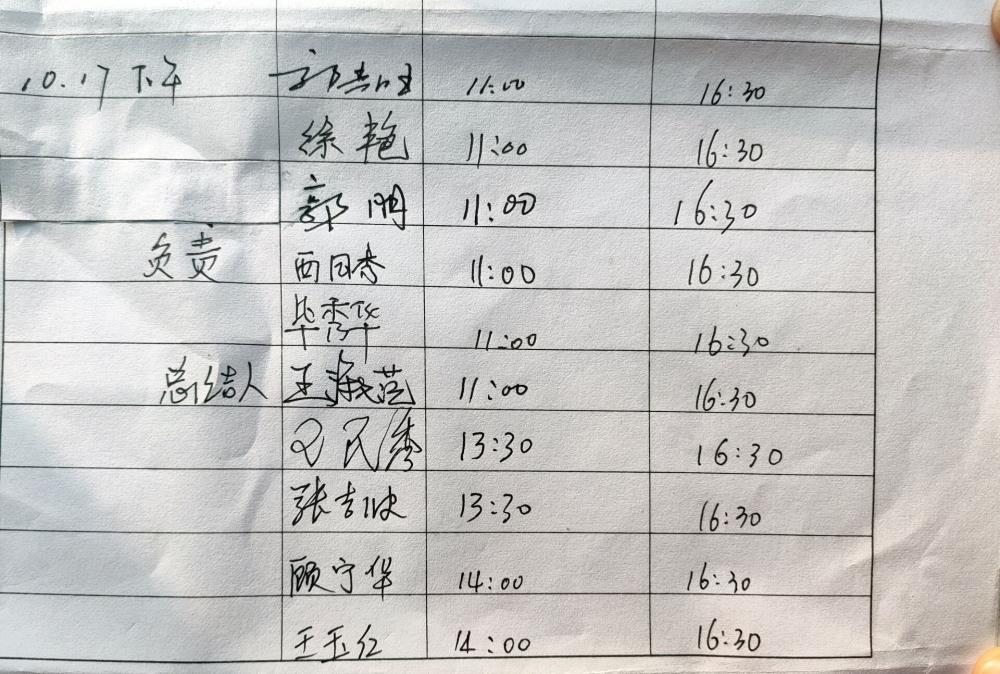 10.17下午 郭 11:00 16:30
徐艳 11:00 16:30
郭明 11:00 16:30
负责 西日香 11:00 16:30
毕秀华 11:00 16:30
总结人 王 范 11:00 16:30
民秀 13:30 16:30
张吉 13:30 16:30
顾宁华 14:00 16:30
王玉红 14:00 16:30